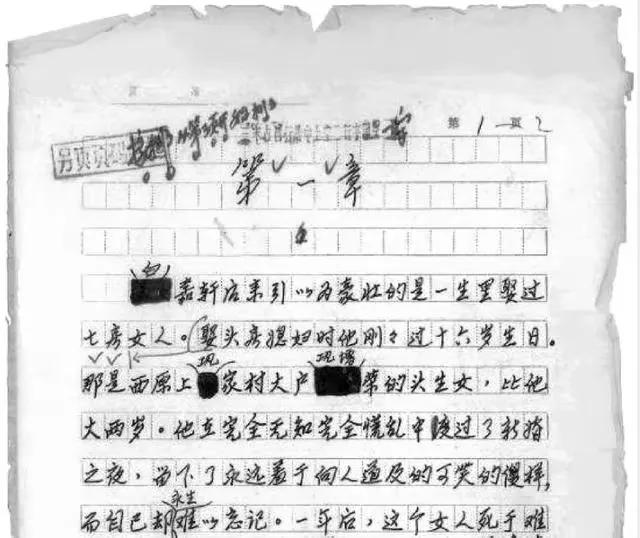 第1页2
第一章
白嘉轩后来引以为豪壮的是一生里娶过
七房女人。娶头房媳妇时他刚々过十六岁生日。
那是西原上巩家村大户巩增荣的头生女，比他
大两岁。他在完全无知完全慌乱中度过了新婚
之夜，留下了永远羞于向人道及的可笑的傻样，
而自己却永生难以忘记。一年后，这个女人死于难